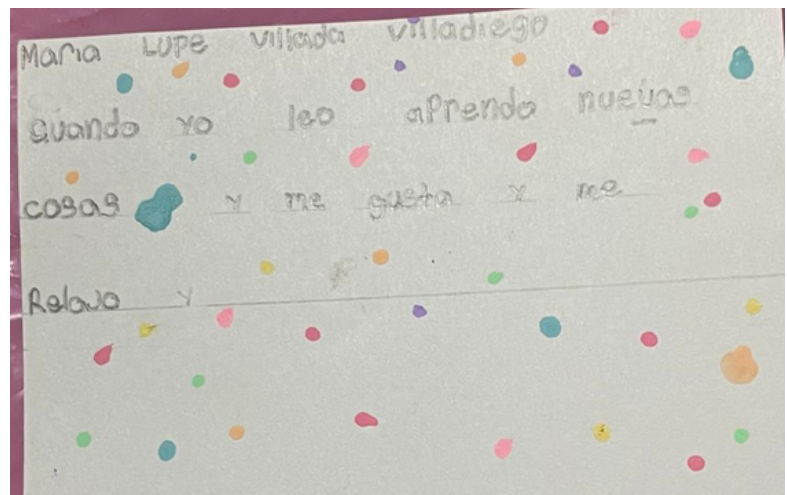 Maria LUPE villada villadiego
cuando yo leo aPrendo nuevas
cosas y me gusta y me
Relajo y